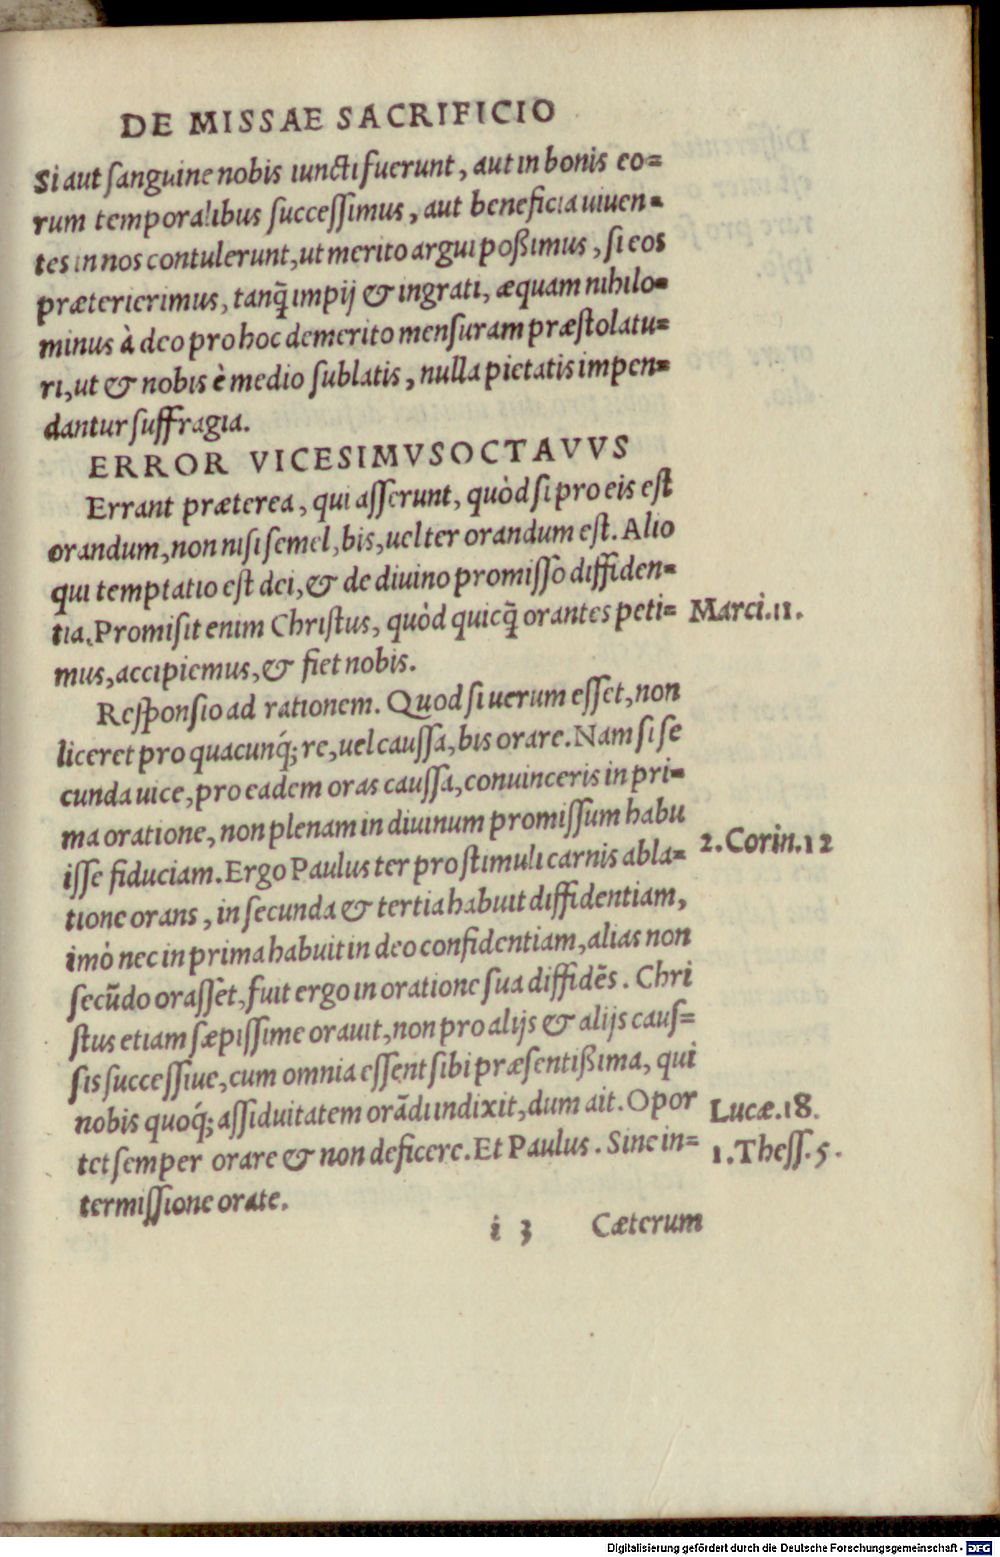 DE MISSAE SACRIFICIO
Si aut sanguine nobis iuncti fuerunt, aut in bonis eo=
rum temporalibus successimus, aut beneficia uiuen=
tes in nos contulerunt, ut merito argui poßimus, si eos
præterierimus, tanq̃ impij & ingrati, æquam nihilo=
minus à deo pro hoc demerito mensuram præstolatu=
ri, ut & nobis è medio sublatis, nulla pietatis impen=
dantur suffragia.
ERROR VICESIMVSOCTAVVS
Errant præterea, qui asserunt, quòd si pro eis est
orandum, non nisi semel, bis, uel ter orandum est. Alio
qui temptatio est dei, & de diuino promisso diffiden=
tia. Promisit enim Christus, quòd quicq̃ orantes peti= Marci.11.
mus, accipiemus, & fiet nobis.
Responsio ad rationem. Quod si uerum esset, non
liceret pro quacunq́; re, uel caussa, bis orare. Nam si se
cunda uice, pro eadem oras caussa, conuinceris in pri=
ma oratione, non plenam in diuinum promissum habu
isse fiduciam. Ergo Paulus ter pro stimuli carnis abla= 2.Corin.12
tione orans, in secunda & tertia habuit diffidentiam,
imò nec in prima habuit in deo confidentiam, alias non
secũdo orasset, fuit ergo in oratione sua diffidẽs. Chri
stus etiam sæpissime orauit, non pro alijs & alijs caus=
sis successiue, cum omnia essent sibi præsentißima, qui
nobis quoq́; assiduitatem orãdi indixit, dum ait. Opor Lucæ.18.
tet semper orare & non deficere. Et Paulus. Sine in= 1.Thess.5.
termissione orate.
i 3 Cæterum
Digitalisierung gefördert durch die Deutsche Forschungsgemeinschaft - DFG